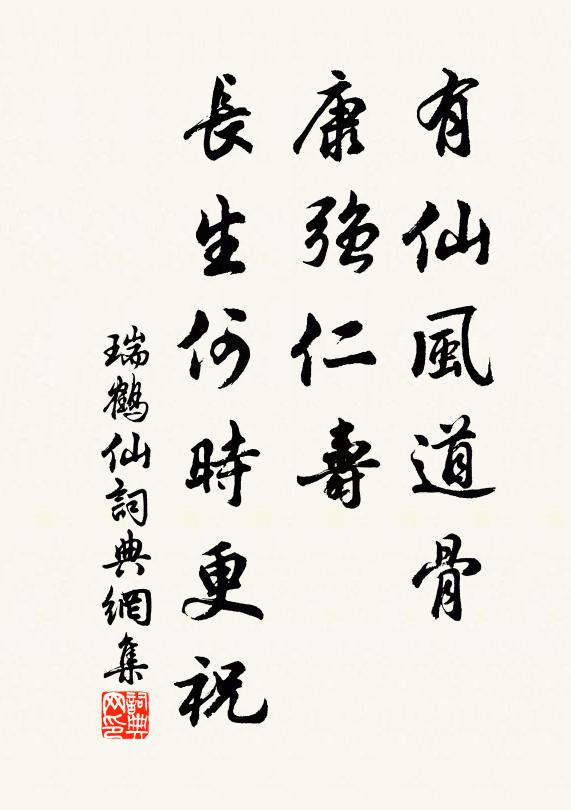 有仙風道骨
康強仁壽
長生何時更祝
瑞鶴仙詞典網集
詞典網印